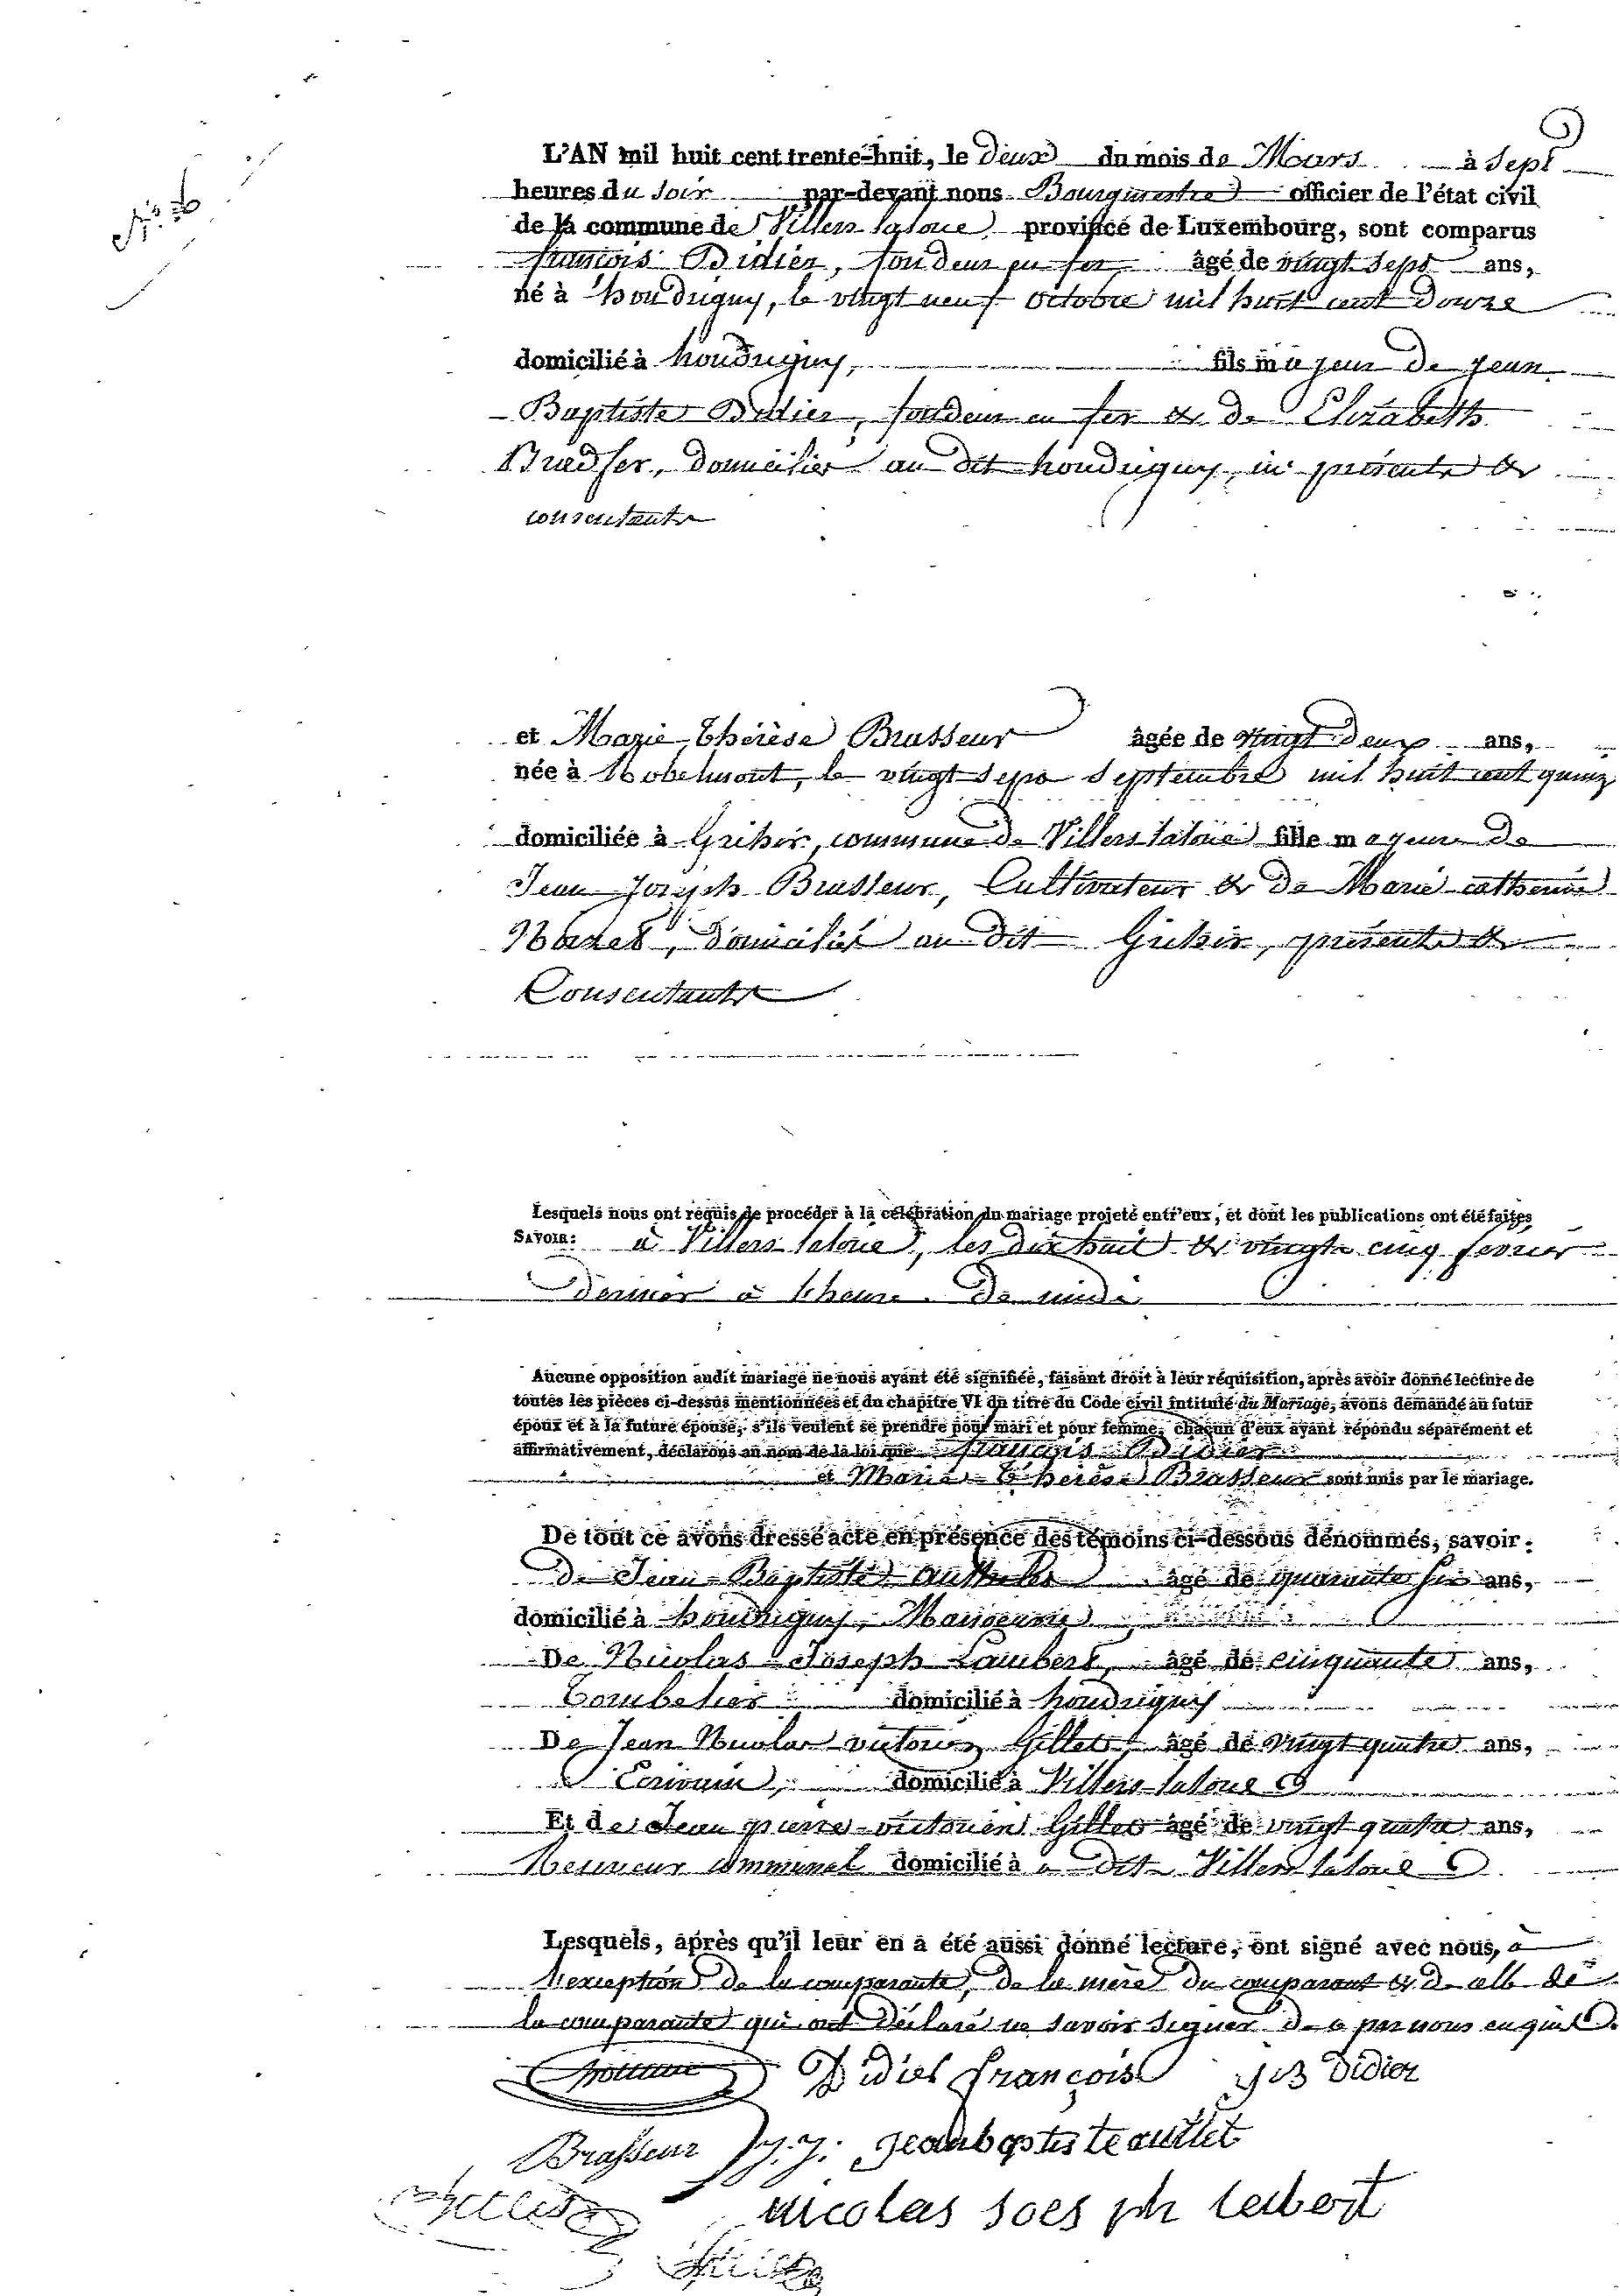 N.° 6
L'AN mil huit cent trente-huit, le deux du mois de Mars à sept
heures du soir par-devant nous Bourgmestre officier de l'état civil
de la commune de Villers la loue province de Luxembourg, sont comparus
françois Didier, fondeur en fer, âgé de vingt sept ans,
né à houdrigny, le vingt neuf octobre mil huit cent douze
domicilié à houdrigny, fils majeur de jean
Baptiste Didier, fondeur en fer & de Elizabeth
domicilier au dit houdrigny, ici présents &
consentants
et Marie Thérèse Brasseur âgée de vingt deux ans,
née à Robelmont, le vingt sept Septembre mil huit cent quinz
domiciliée à Grihir, commune de Villers laloue fille majeure de
Jean Joseph Brasseur, Cultivateur & de Marie catherine
domicilié au dit Grihir, présents &
Consentants
Lesquels nous ont requis de procéder à la célébration du mariage projeté entr'eux, et dont les publications ont été faites
SAVOIR: à Villers laloue, les dix huit & vingt cinq fevrier
dernier à l'heure de midi
Aucune opposition audit mariage ne nous ayant été signifiée, faisant droit à leur réquisition, après avoir donné lecture de
toutes les pièces ci-dessus mentionnées et du chapitre VI du titre du Code civil intitulé du Mariage, avons demandé au futur
époux et à la future épouse, s'ils veulent se prendre pour mari et pour femme, chacun d'eux ayant répondu séparément et
affirmativement, déclarons au nom de la loi que françois Didier
et Marie Thérèse Brasseur sont unis par le mariage.
De tout ce avons dressé acte en présence des témoins ci-dessous dénommés, savoir:
de Jean Baptiste âgé de quarante six ans,
domicilié à houdrigny,
De Nicolas Joseph Lambert, âgé de cinquante ans,
domicilié à houdrigny
De Jean Nicolas victorien Gillet, âgé de vingt quatre ans,
Ecrivain, domicilié à Villers laloue
Et de Jean pierre victorien Gillet âgé de vingt quatre ans,
Receveur communal domicilié à u dit Villers laloue
Lesquels, après qu'il leur en a été aussi donné lecture, ont signé avec nous, à
l'exception de la comparante, de la mère du comparant & de celle de
la comparante qui ont déclaré ne savoir signer de ce par nous enquis.
Didier françois J B Didier
Brasseur J. J. jeanbaptiste autlet
nicolas Joes ph labert